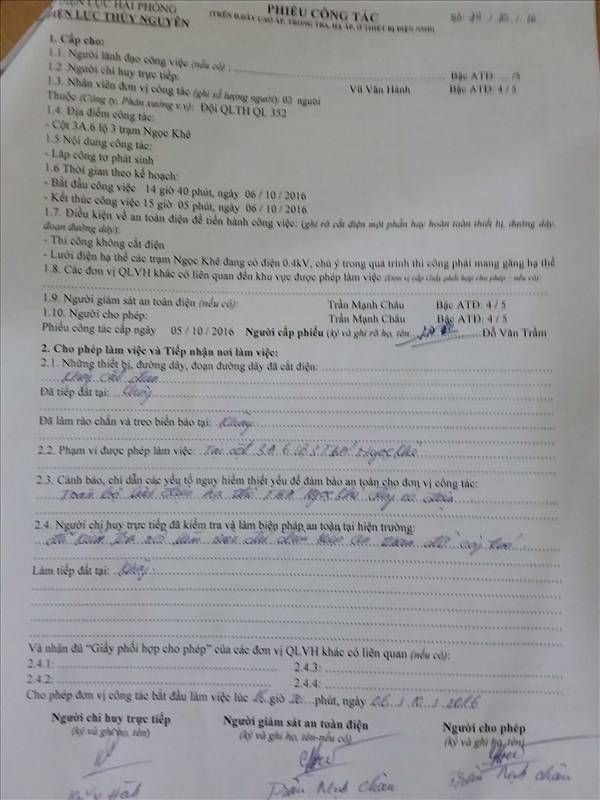 ĐIỆN LỰC HẢI PHÒNG
ĐIỆN LỰC THỦY NGUYÊN
PHIẾU CÔNG TÁC
(TRÊN Đ.DÂY CAO ÁP, TRONG TBA, HẠ ÁP, Ở THIẾT BỊ ĐIỆN NMĐ)
Số: / 10 / 16
1. Cấp cho:
1.1. Người lãnh đạo công việc (nếu có) : Bậc ATĐ: ... /5
1.2 Người chỉ huy trực tiếp: Vũ Văn Hành Bậc ATĐ: 4 / 5
1.3. Nhân viên đơn vị công tác (ghi số lượng người): 02 người
Thuộc (Công ty, Phân xưởng v.v): Đội QLTH QL 352
1.4. Địa điểm công tác:
- Cột 3A.6 lộ 3 trạm Ngọc Khê
1.5 Nội dung công tác:
- Lắp công tơ phát sinh
1.6 Thời gian theo kế hoạch:
- Bắt đầu công việc 14 giờ 40 phút, ngày 06 / 10 / 2016
- Kết thúc công việc 15 giờ 05 phút, ngày 06 / 10 / 2016
1.7. Điều kiện về an toàn điện để tiến hành công việc: (ghi rõ cắt điện một phần hay hoàn toàn thiết bị, đường dây,
đoạn đường dây):
- Thi công không cắt điện
- Lưới điện hạ thế các trạm Ngọc Khê đang có điện 0.4kV, chú ý trong quá trình thi công phải mang găng hạ thế
1.8. Các đơn vị QLVH khác có liên quan đến khu vực được phép làm việc (Đơn vị cấp Giấy phối hợp cho phép - nếu có):
1.9. Người giám sát an toàn điện (nếu có): Trần Mạnh Châu Bậc ATĐ: 4 / 5
1.10. Người cho phép: Trần Mạnh Châu Bậc ATĐ: 4 / 5
Phiếu công tác cấp ngày 05 / 10 / 2016 Người cấp phiếu (ký và ghi rõ họ, tên) Đỗ Văn Trầm
2. Cho phép làm việc và Tiếp nhận nơi làm việc:
2.1. Những thiết bị, đường dây, đoạn đường dây đã cắt điện:
Không cắt điện
Đã tiếp đất tại: Không
Đã làm rào chắn và treo biển báo tại: Không
2.2. Phạm vi được phép làm việc: Tại cột 3A.6 lộ 3 TBA Ngọc Khê
2.3. Cảnh báo, chỉ dẫn các yếu tố nguy hiểm thiết yếu để đảm bảo an toàn cho đơn vị công tác:
Toàn bộ lưới điện hạ thế TBA Ngọc Khê có điện
2.4. Người chỉ huy trực tiếp đã kiểm tra và làm biện pháp an toàn tại hiện trường:
Làm tiếp đất tại: Không
Và nhận đủ “Giấy phối hợp cho phép” của các đơn vị QLVH khác có liên quan (nếu có):
2.4.1: 2.4.3:
2.4.2: 2.4.4:
Cho phép đơn vị công tác bắt đầu làm việc lúc giờ phút, ngày 06 / 10 / 2016
Người chỉ huy trực tiếp Người giám sát an toàn điện Người cho phép
(ký và ghi họ, tên) (ký và ghi họ, tên-nếu có) (ký và ghi họ, tên)
Hành Trần Mạnh Châu Trần Mạnh Châu